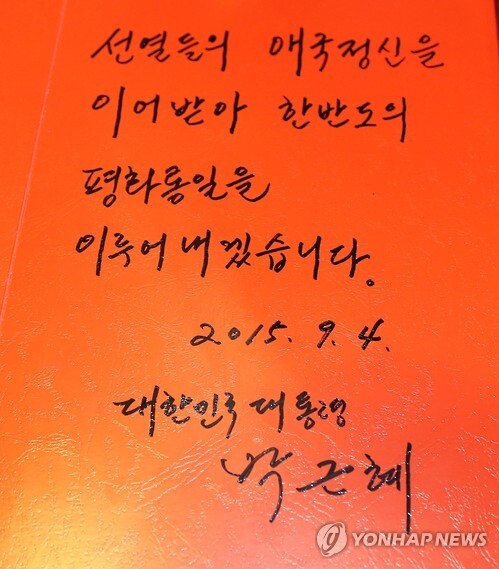 선열들의 애국정신을
이어받아 한반도의
평화통일을
이루어 내겠습니다.
2015. 9. 4.
대한민국 대통령
박근혜
YONHAP NEWS